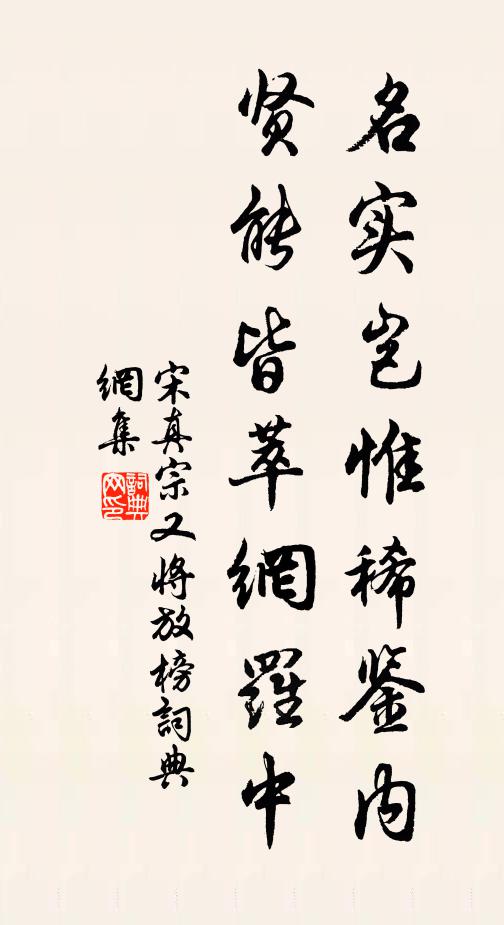 名实岂惟稀鉴内
贤能皆萃網羅中
宋真宗又将放榜詞典
網集
詞典网印